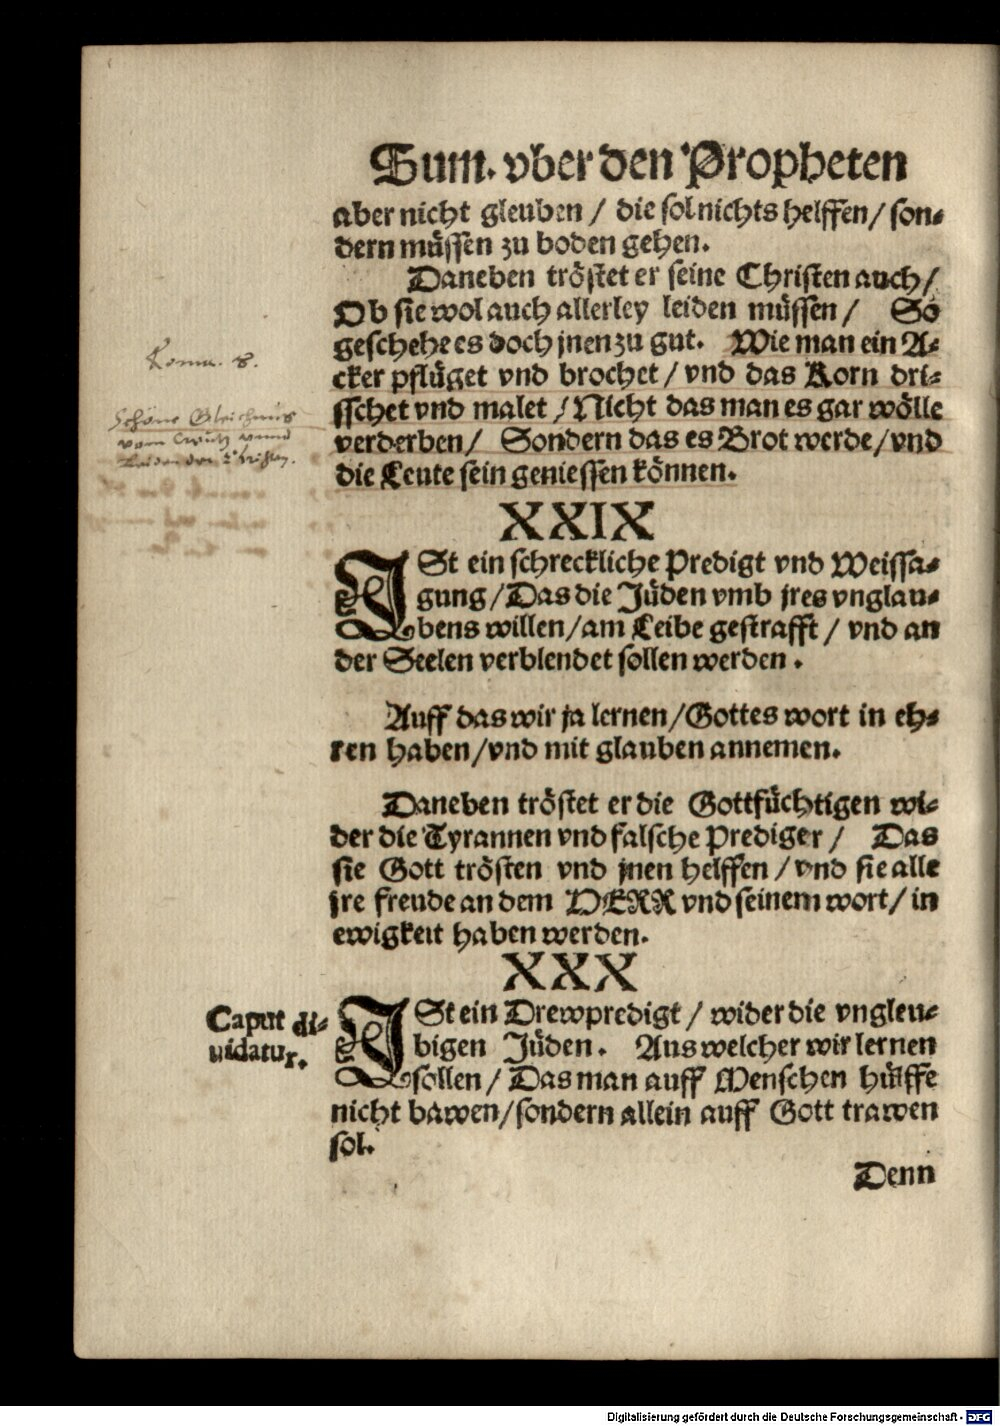 Sum. vber den Propheten
aber nicht gleuben / die sol nichts helffen / son=
dern müssen zu boden gehen.
Daneben tröstet er seine Christen auch /
Ob sie wol auch allerley leiden müssen / So
geschehe es doch jnen zu gut. Wie man ein A=
cker pflüget vnd brochet / vnd das Korn dri=
sschet vnd malet / Nicht das man es gar wölle
verderben / Sondern das es Brot werde / vnd
die Leute sein geniessen können.
Roma. 8.
Schöne Gleichnus
vom Creutz vnnd
leiden der Christen.
XXIX
ISt ein schreckliche Predigt vnd Weissa=
gung / Das die Jüden vmb jres vnglau=
bens willen / am Leibe gestrafft / vnd an
der Seelen verblendet sollen werden.
Auff das wir ja lernen / Gottes wort in eh=
ren haben / vnd mit glauben annemen.
Daneben tröstet er die Gottfüchtigen wi=
der die Tyrannen vnd falsche Prediger / Das
sie Gott trösten vnd jnen helffen / vnd sie alle
jre freude an dem HERR vnd seinem wort / in
ewigkeit haben werden.
XXX
Caput di=
uidatur.
ISt ein Drewpredigt / wider die vngleu=
bigen Jüden. Aus welcher wir lernen
sollen / Das man auff Menschen hülffe
nicht bawen / sondern allein auff Gott trawen
sol.
Denn
Digitalisierung gefördert durch die Deutsche Forschungsgemeinschaft - DFG